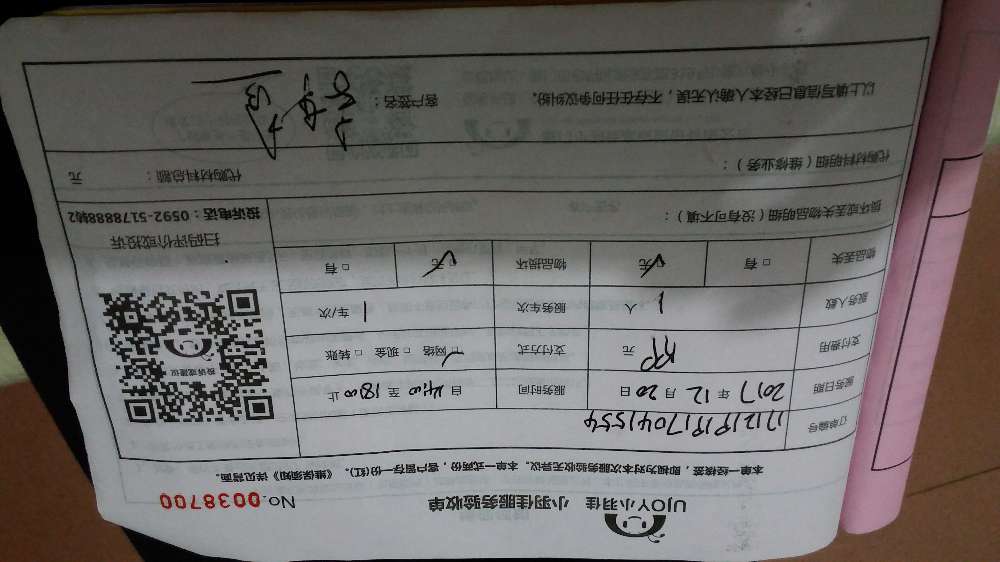 UJOY小羽佳 小羽佳服务验收单 No.0038700
本单一经核签，即视为对本次服务验收无异议。本单一式两份，客户留存一份(红)。《维保须知》详见背面。
订单编号
服务日期 2017年12月20日 服务时间 自14:00至18:00止
支付费用 元 支付方式 □网络 □现金 □转账
服务人数 1人 服务车次 1车/次
物品丢失 □有 ☑无 物品损坏 ☑无 □有
扫码评价或投诉
投诉或建议
投诉电话：0592-5178888转2
损坏或丢失物品明细（没有可不填）：
代购材料明细（维修业务）： 代购材料总额： 元
以上填写信息已经本人确认无误，不存在任何争议纠纷。 客户签名：